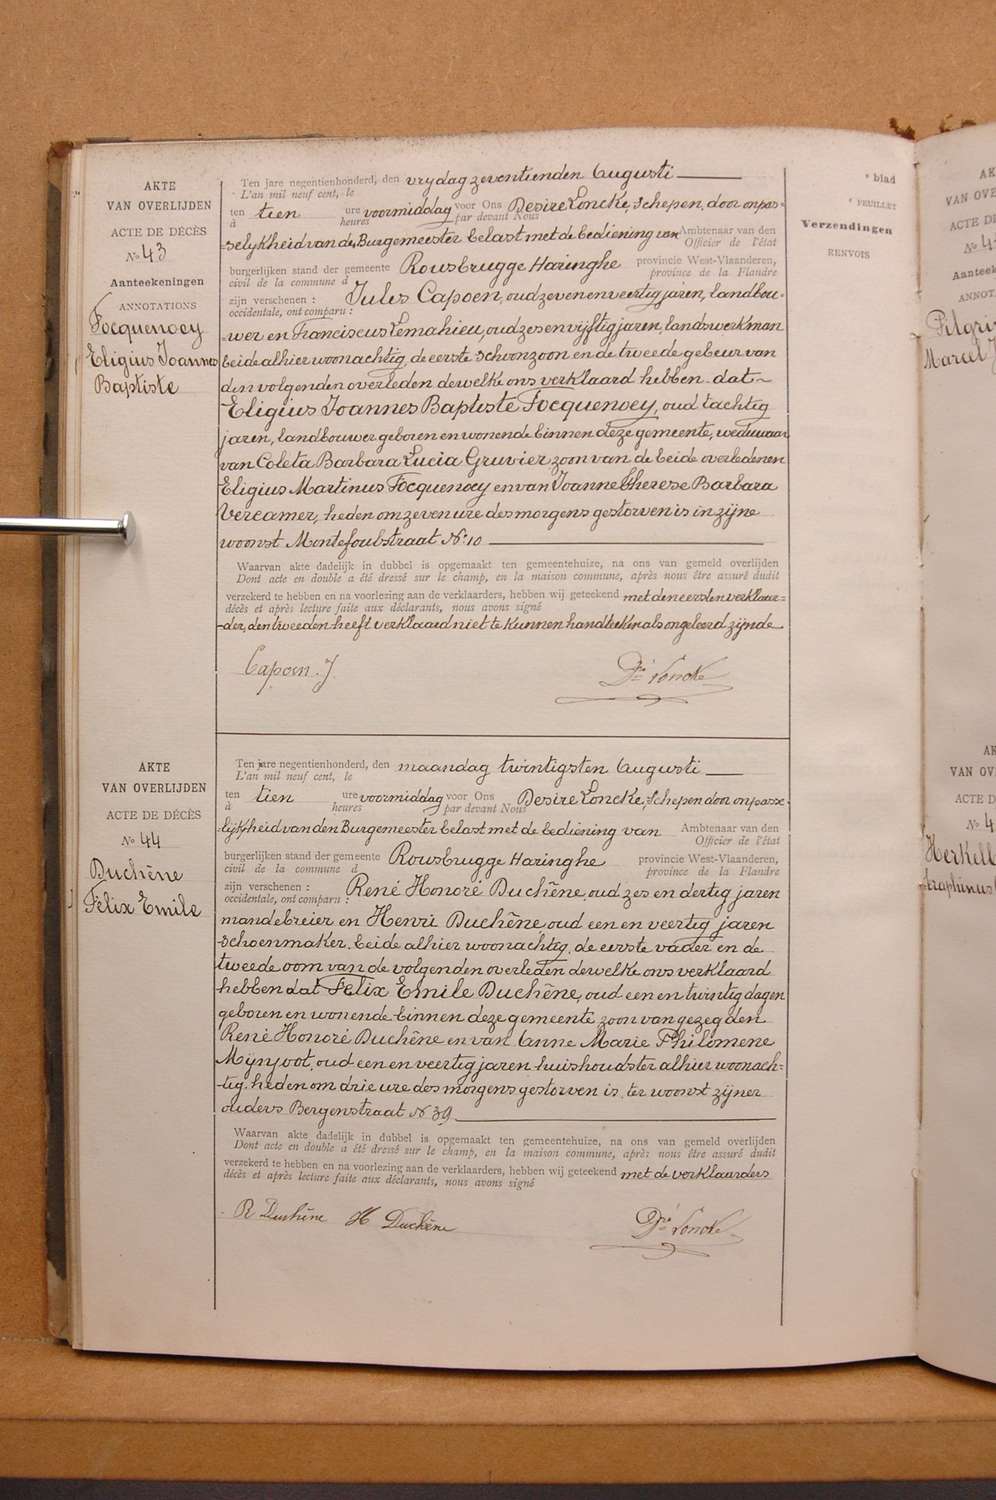 AKTE
VAN OVERLIJDEN
ACTE DE DÉCÈS
No 43
Aanteekeningen
ANNOTATIONS
Focquenoey
Eligius Joannes
Baptiste
Ten jare negentienhonderd, den vrydag zeventienden Augusti
L'an mil neuf cent, le
ten tien ure voormiddag voor Ons Desiré Loncke, Schepen, door onpas-
à heures par devant Nous
selykheid van den Burgemeester belast met de bediening van Ambtenaar van den
Officier de l'état
burgerlijken stand der gemeente Rousbrugge Haringhe provincie West-Vlaanderen,
civil de la commune d province de la Flandre
zijn verschenen : Jules Capoen, oud zeven en veertig jaren, landbou-
occidentale, ont comparu :
wer en Franciscus Lemahieu, oud zes en vyftig jaren, landswerkman
beide alhier woonachtig de eerste schoonzoon en de tweede gebuur van
den volgenden overleden dewelke ons verklaard hebben dat
Eligius Joannes Baptiste Focquenoey, oud tachtig
jaren, landbouwer geboren en wonende binnen deze gemeente, weduwaar
van Coleta Barbara Lucia Gruvier, zoon van de beide overledenen
Eligius Martinus Focquenoey en van Joanne Therese Barbara
Vereamer, heden om zeven ure des morgens gestorven is in zijne
woonst Montefoubstraat No 10
Waarvan akte dadelijk in dubbel is opgemaakt ten gemeentehuize, na ons van gemeld overlijden
Dont acte en double a été dressé sur le champ, en la maison commune, après nous être assuré dudit
verzekerd te hebben en na voorlezing aan de verklaarders, hebben wij geteekend met den eersten verklaar-
décès et après lecture faite aux déclarants, nous avons signé
der, den tweeden heeft verklaard niet te kunnen handteeknen als ongeleerd zijnde
Capoen. J Dré Loncke
AKTE
VAN OVERLIJDEN
ACTE DE DÉCÈS
No 44
Duchêne
Felix Emile
Ten jare negentienhonderd, den maandag twintigsten Augusti
L'an mil neuf cent, le
ten tien ure voormiddag voor Ons Desiré Loncke, Schepen door onpasse-
à heures par devant Nous
lijkheid van den Burgemeester belast met de bediening van Ambtenaar van den
Officier de l'état
burgerlijken stand der gemeente Rousbrugge Haringhe provincie West-Vlaanderen,
civil de la commune d province de la Flandre
zijn verschenen : René Honoré Duchêne, oud zes en dertig jaren
occidentale, ont comparu :
mandebreier en Henri Duchêne oud een en veertig jaren
schoenmaker, beide alhier woonachtig, de eerste vader en de
tweede oom van de volgenden overleden dewelke ons verklaard
hebben dat Felix Emile Duchêne, oud een en twintig dagen
geboren en wonende binnen deze gemeente zoon van gezegden
René Honoré Duchêne en van Anne Marie Philomene
Mijnjoot, oud een en veertig jaren huishoudster alhier woonach-
tig, heden om drie ure des morgens gestorven is, ter woonst zijner
ouders Bergenstraat No 39
Waarvan akte dadelijk in dubbel is opgemaakt ten gemeentehuize, na ons van gemeld overlijden
Dont acte en double a été dressé sur le champ, en la maison commune, après nous être assuré dudit
verzekerd te hebben en na voorlezing aan de verklaarders, hebben wij geteekend met de verklaarders
décès et après lecture faite aux déclarants, nous avons signé
R Duchêne H Duchêne Dré Loncke
e blad
e FEUILLET
Verzendingen
RENVOIS